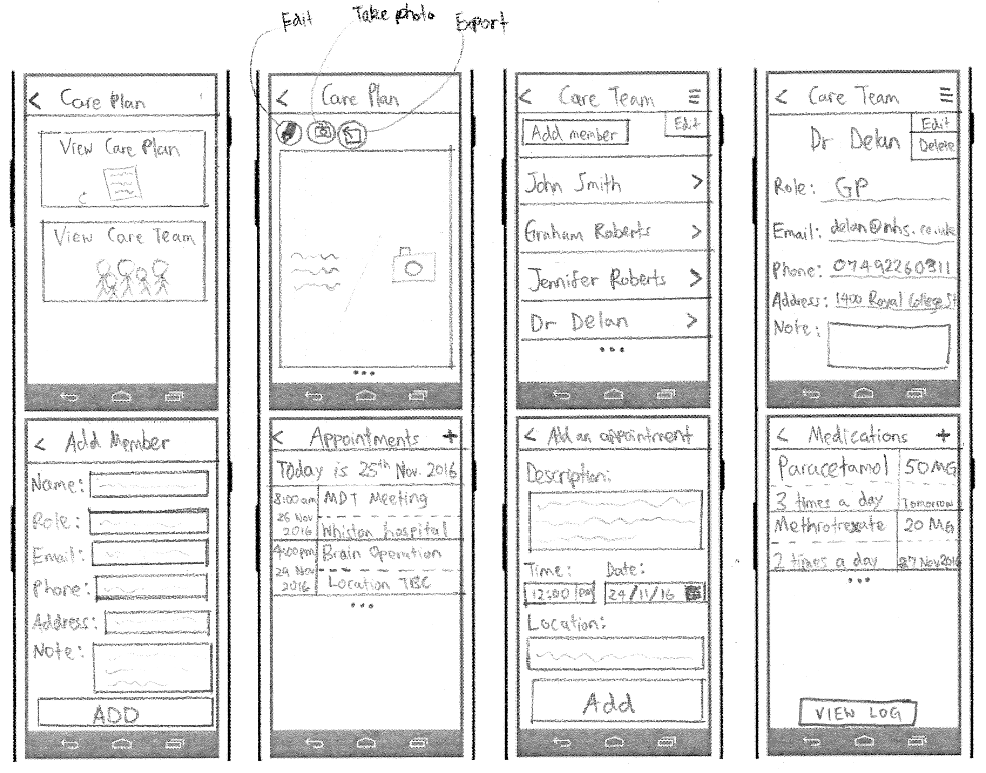 Edit
Take photo
Export
< Care Plan
View Care Plan
View Care Team
< Care Plan
...
< Care Team
Edit
Add member
John Smith >
Graham Roberts >
Jennifer Roberts >
Dr Delan >
...
< Care Team
Edit
Delete
Dr Delan
Role: GP
Email: delan@nhs.co.uk
Phone: 07492260311
Address: 1400 Royal College St
Note:
< Add Member
Name:
Role:
Email:
Phone:
Address:
Note:
ADD
< Appointments +
Today is 25th Nov. 2016
8:00am MDT Meeting
26 Nov
2016 Whiston hospital
4:00pm Brain Operation
29 Nov
2016 Location TBC
...
< Add an appointment
Description:
Time: Date:
12:00 pm 24/11/16
Location:
Add
< Medications +
Paracetamol 50MG
3 times a day Tomorrow
Methrotrexate 20 MG
2 times a day 27 Nov 2016
...
VIEW LOG